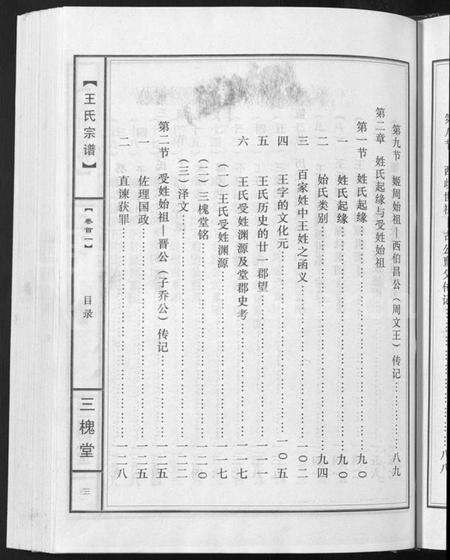 第九节 姬周始祖—西伯昌公（周文王）传记……八九
第二章 姓氏起缘与受姓始祖
第一节 姓氏起缘……九〇
一 姓氏起缘……九〇
二 始氏类别……九四
三 百家姓中王姓之函义……一〇二
四 王字的文化元……一〇五
五 王氏历史的廿一郡望……一一一
六 王氏受姓渊源及堂郡史考……一一七
（一）王氏受姓渊源……一一七
（二）三槐堂铭……一二〇
（三）泽文……一二二
第二节 受姓始祖—晋公（子乔公）传记……一二五
一 佐理国政……一二五
二 直谏获罪……一二八
【王氏宗谱】
【卷首一】
目录
三槐堂
三